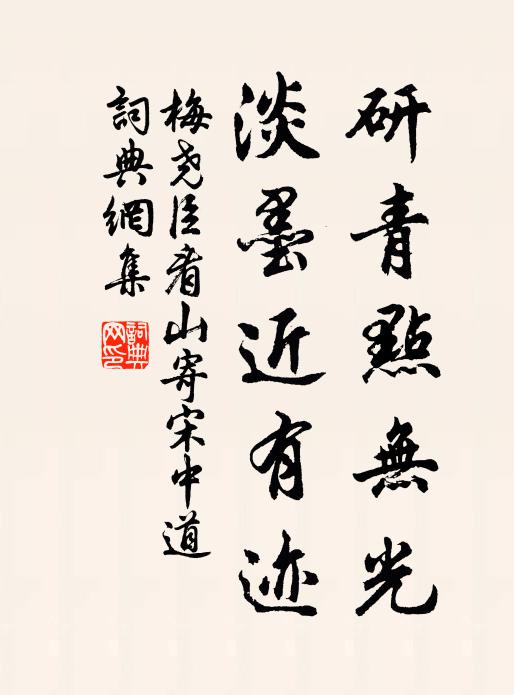 研青點無光
淡墨近有迹
梅尧臣看山寄宋中道
詞典網集
詞典網印